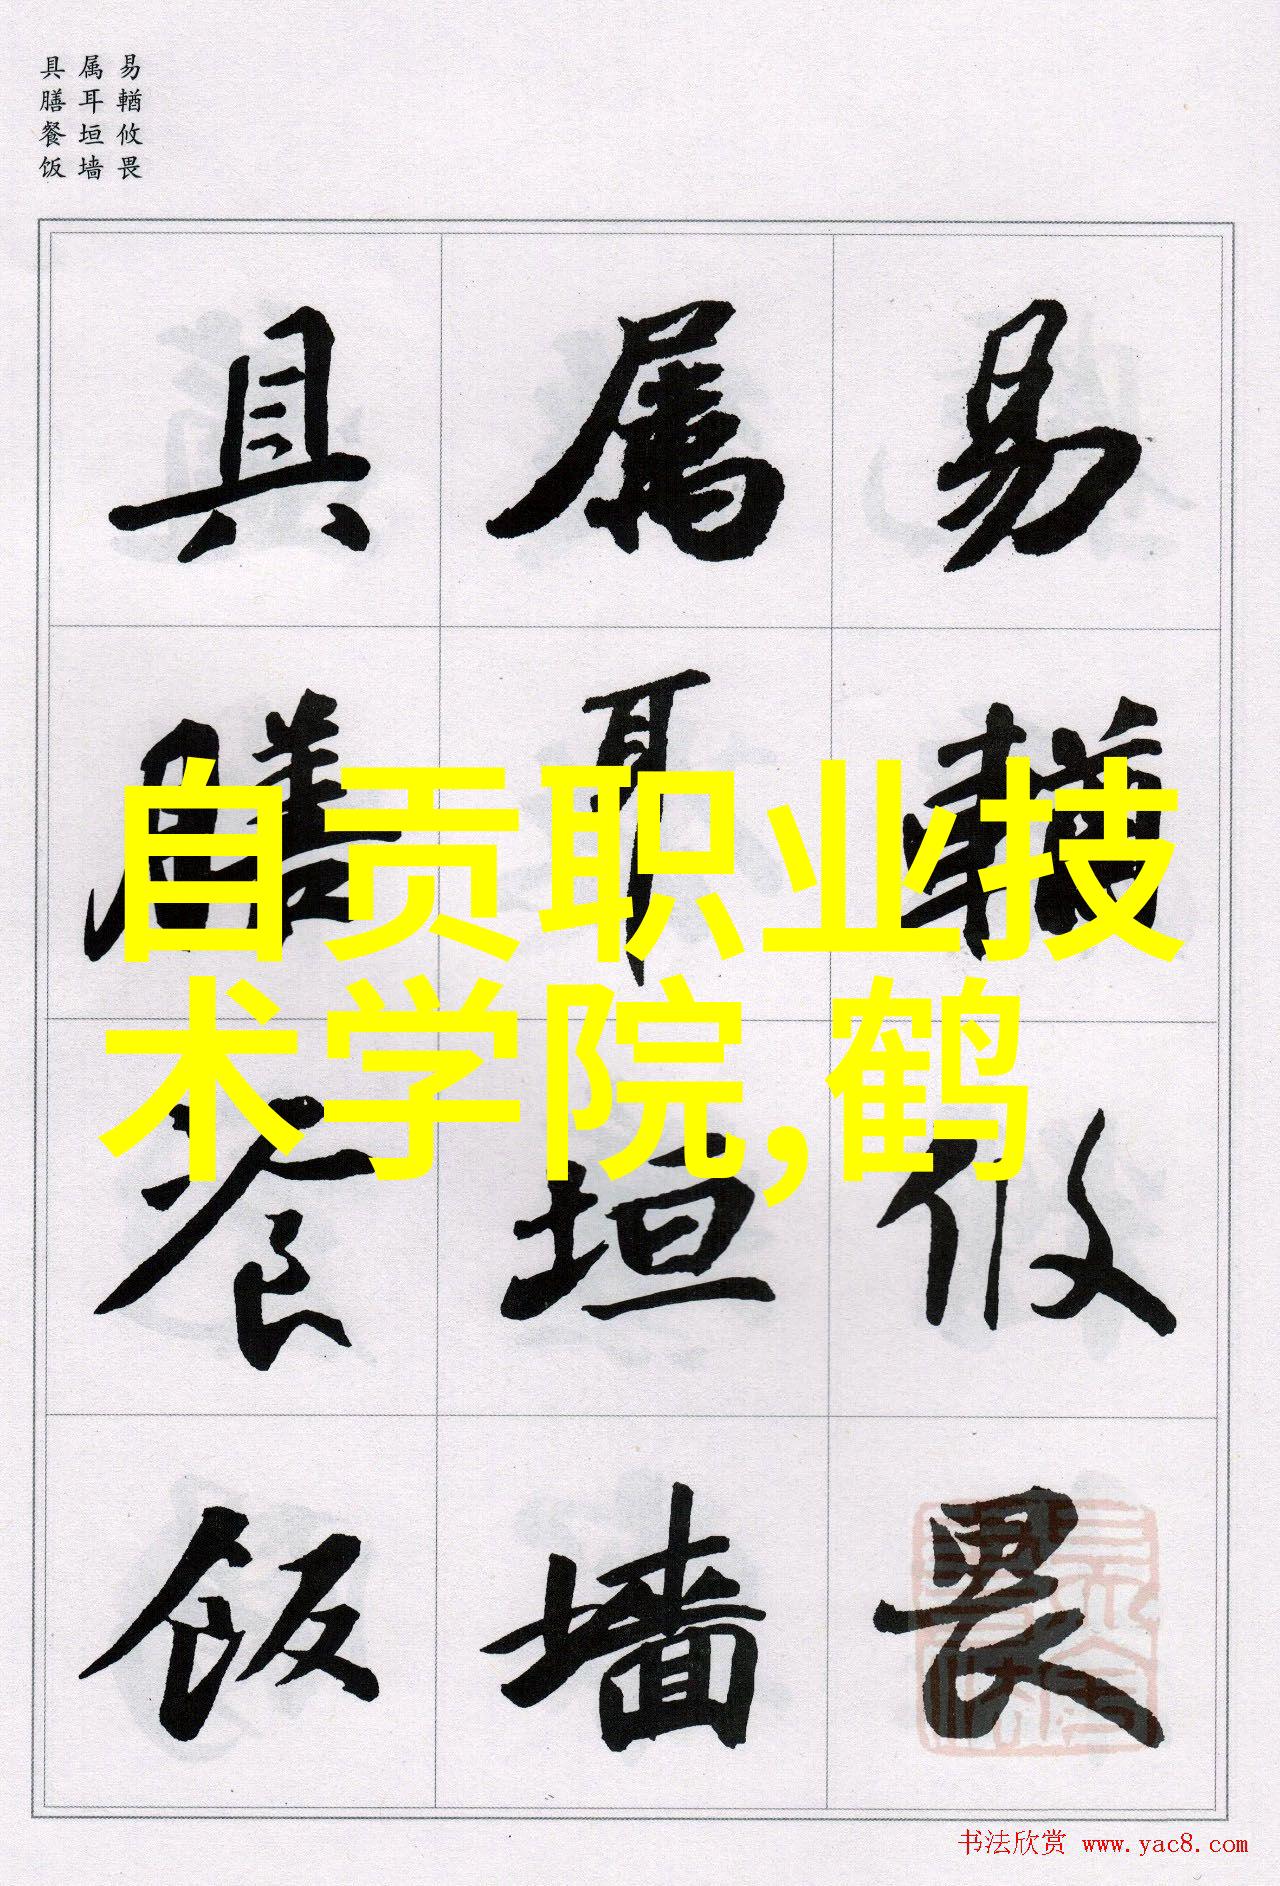 易輶攸畏
属耳垣墙
具膳餐饭
易輶攸畏
属耳垣墙
具膳餐饭
自贡职业技
术学院,鹤
书法欣赏 www.yac8.com